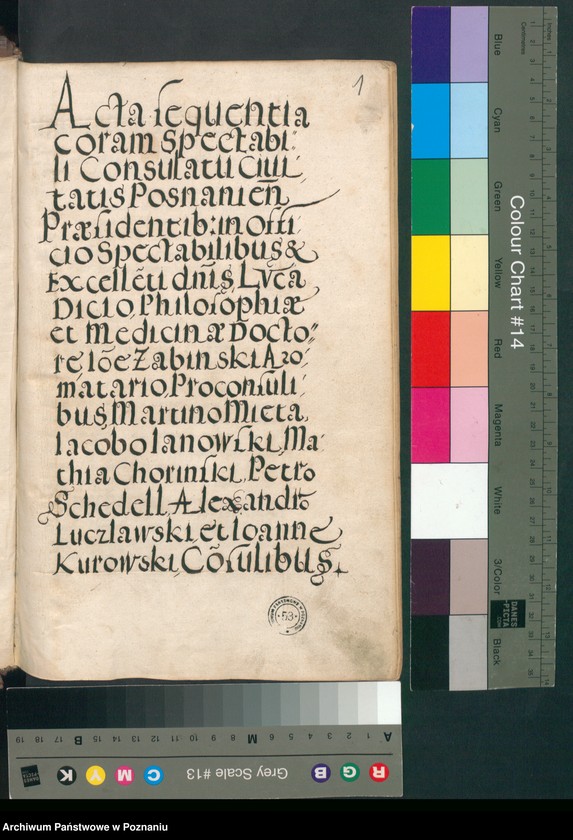 1
Acta sequentia
coram Spectabi:
li Consulatu Ciui
tatis Posnanien̄
Præsidentib: in offi
cio Spectabilibus &
Excellēti dn̄is Luca
Dicio Philosophiæ
et Medicinæ Docto:
re Iōe Zabinski Aro:
matario Proconsuli
bus Martino Micta
Iacobo Ianowski, Ma:
thia Chorinski, Petro
Schedell Alexandro
Luczlawski et Ioanne
Kurowski, Cōsulibus.
53
Colour Chart #14
Blue
Cyan
Green
Yellow
Red
Magenta
White
3/Color
Black
Centimetres
Inches
DANES
-PICTA
.COM
Grey Scale #13
R G B C M Y K
A 1 2 3 4 5 6 M 8 9 10 11 12 13 14 15 B 17 18 19
Archiwum Państwowe w Poznaniu